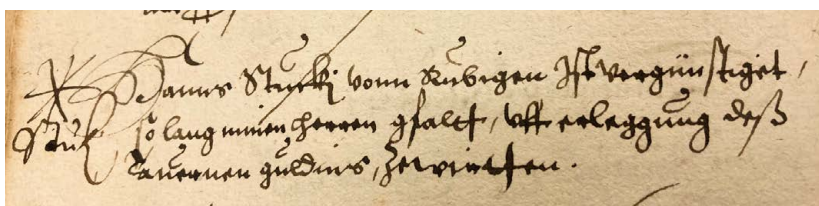 Hanns Stucki vonn Rubigen Ist vergünstiget,
Stuk so lang minen herren gfallt, uff erleggung deß
Tavernen guldins, ze wirtten.